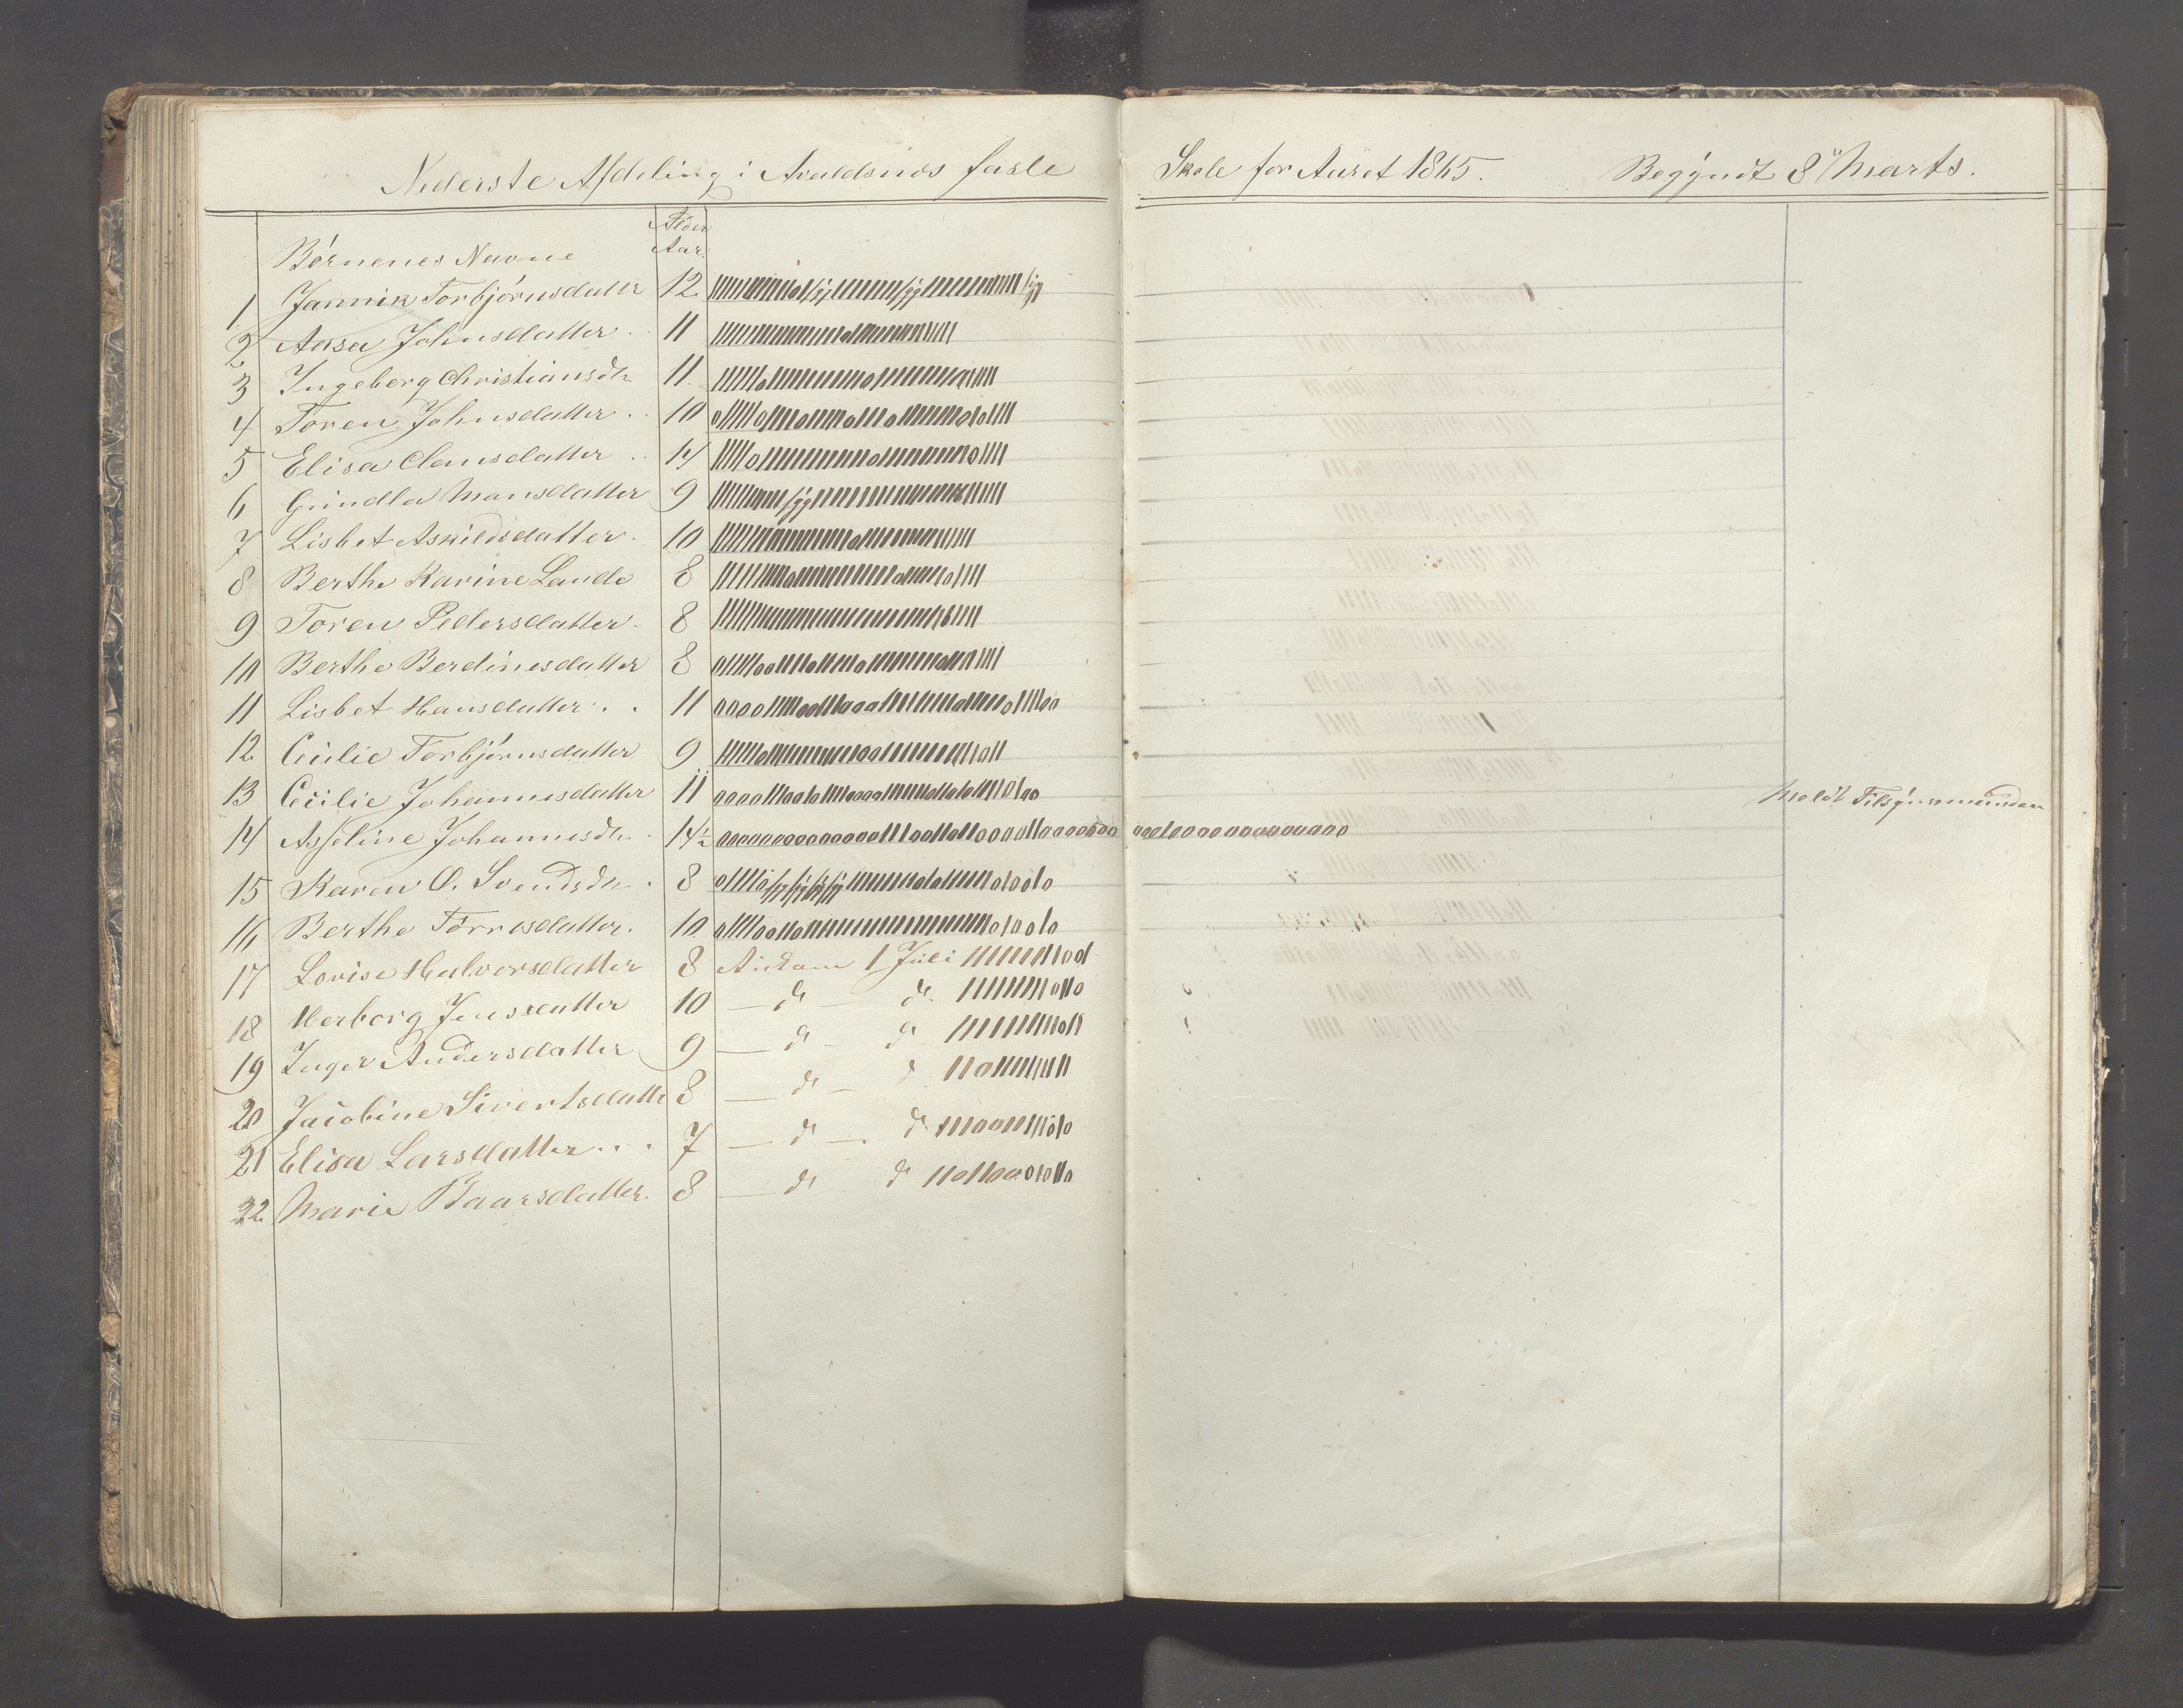 Nederste Afdeling i Avaldsnes faste Skole for Aaret 1865. Begyndt 8de Marts.
Alder
Børnenes Navne Aar.
1 Jannik Torbjørnsdatter 12
2 Aasa Johnsdatter 11
3 Ingeborg Christiansdtr 11
4 Toren Johnsdatter 10
5 Elisa Clausdatter 14
6 Gundla Mansdatter 9
7 Lisbet Askildsdatter 10
8 Berthe Karine Lande 8
9 Toren Pedersdatter 8
10 Berthe Berdinesdatter 8
11 Lisbet Hansdatter 11
12 Cecilie Torbjørnsdatter 9
13 Cecilie Johannesdatter 11
14 Asseline Johannesdtr 14 1/2
15 Karen O. Svendsdtr 8
16 Berthe Tørresdatter 10
17 Lovise Halvorsdatter 8 Ankom 1 Juli
18 Herborg Jensdatter 10 — do — do
19 Inger Andersdatter 9 — do — do
20 Jacobine Sivertsdatter 8 — do — do
21 Elisa Larsdatter 7 — do — do
22 Marie Baarsdatter 8 — do do
Meldt Tilsynsmanden